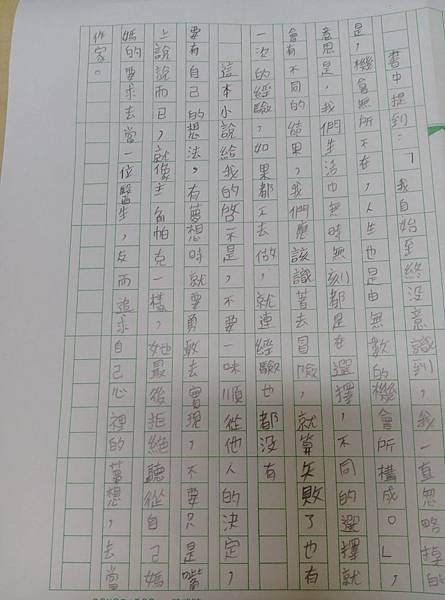 書中提到:「我自始至終沒意識到,我一直忽略掉的
是,機會無所不在,人生也是由無數的機會所構成。」
意思是,我們生活中無時無刻都是在選擇,不同的選擇就
會有不同的結果,我們應該識著去冒險,就算失敗了也有
一次的經驗,如果都不去做,就連經驗也都沒有
這本小說給我的啓示是,不要一味順從他人的決定,
要有自己的想法,有夢想時就要勇敢去實現,不要只是嘴
上說說而已,就像主角帕克一樣,她最後拒絕聽從自己媽
媽的要求去當一位醫生,反而追求自己心裡的夢想,去當
作家。